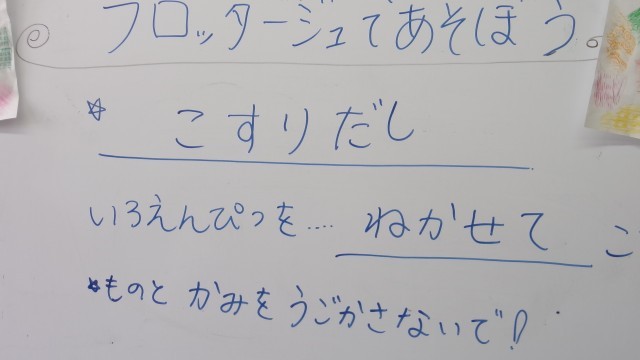 フロッタージュであそぼう。
☆ こすりだし
いろえんぴつを.... ねかせて こ
*ものと かみを うごかさないで!